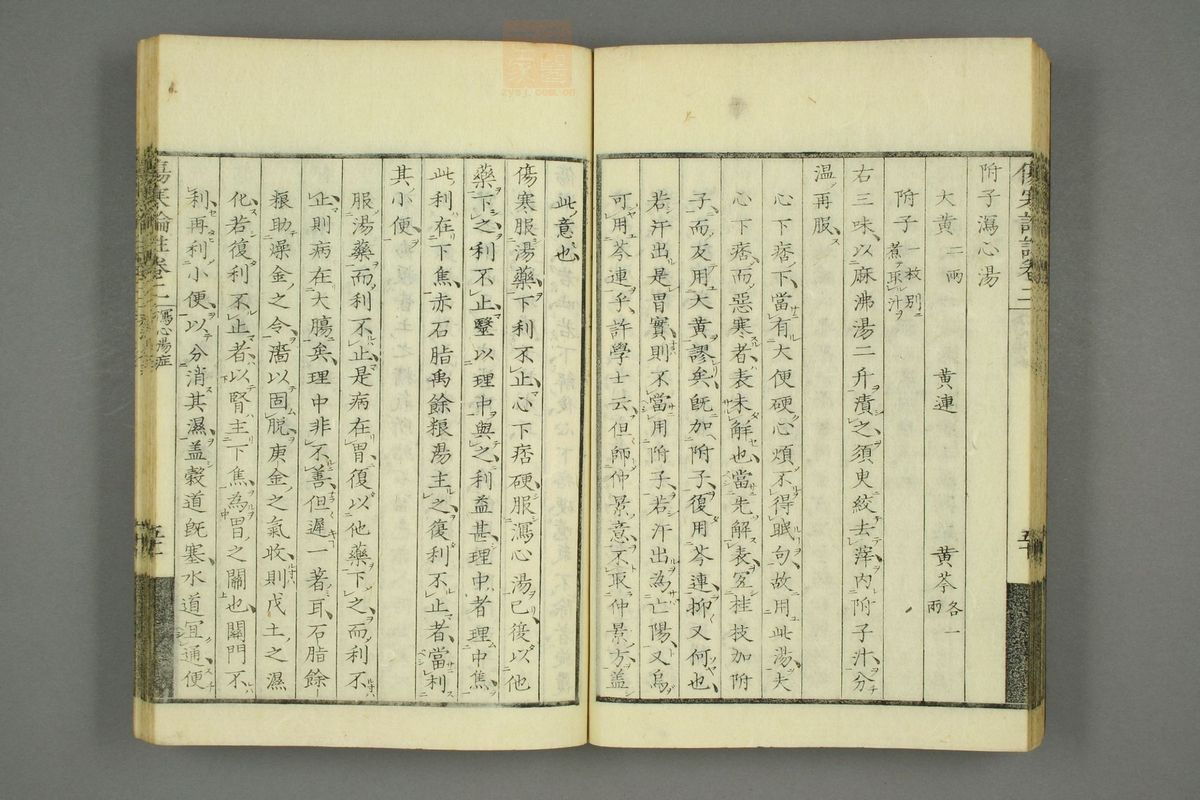 附子瀉心湯
大黄二兩 黄連 黄芩各一兩
附子一枚別煮取汁
右三味以麻沸湯二升漬之須臾絞去滓内附子汁分
温再服
心下痞下當有大便硬心煩不得眠句故用此湯夫
心下痞而惡寒者表未解也當先解表宜桂枝加附
子而反用大黄謬矣既加附子復用芩連抑又何也
若汗出是胃實則不當用附子若汗出為亡陽又烏
可用芩連乎許學士云但師仲景意不取仲景方蓋
此意也
傷寒服湯藥下利不止心下痞硬服瀉心湯已後以他
藥下之利不止醫以理中與之利益甚理中者理中焦
此利在下焦赤石脂禹餘粮湯主之復利不止者當利
其小便
服湯藥而利不止是病在胃復以他藥下之而利不
止則病在大腸矣理中非不善但遲一著耳石脂餘
粮助燥金之令濇以固脱庚金之氣收則戊土之濕
化若復利不止者以腎主下焦為胃之關也關門不
利再利小便以分消其濕蓋穀道既塞水道宜通便
傷寒論註卷二 瀉心湯症